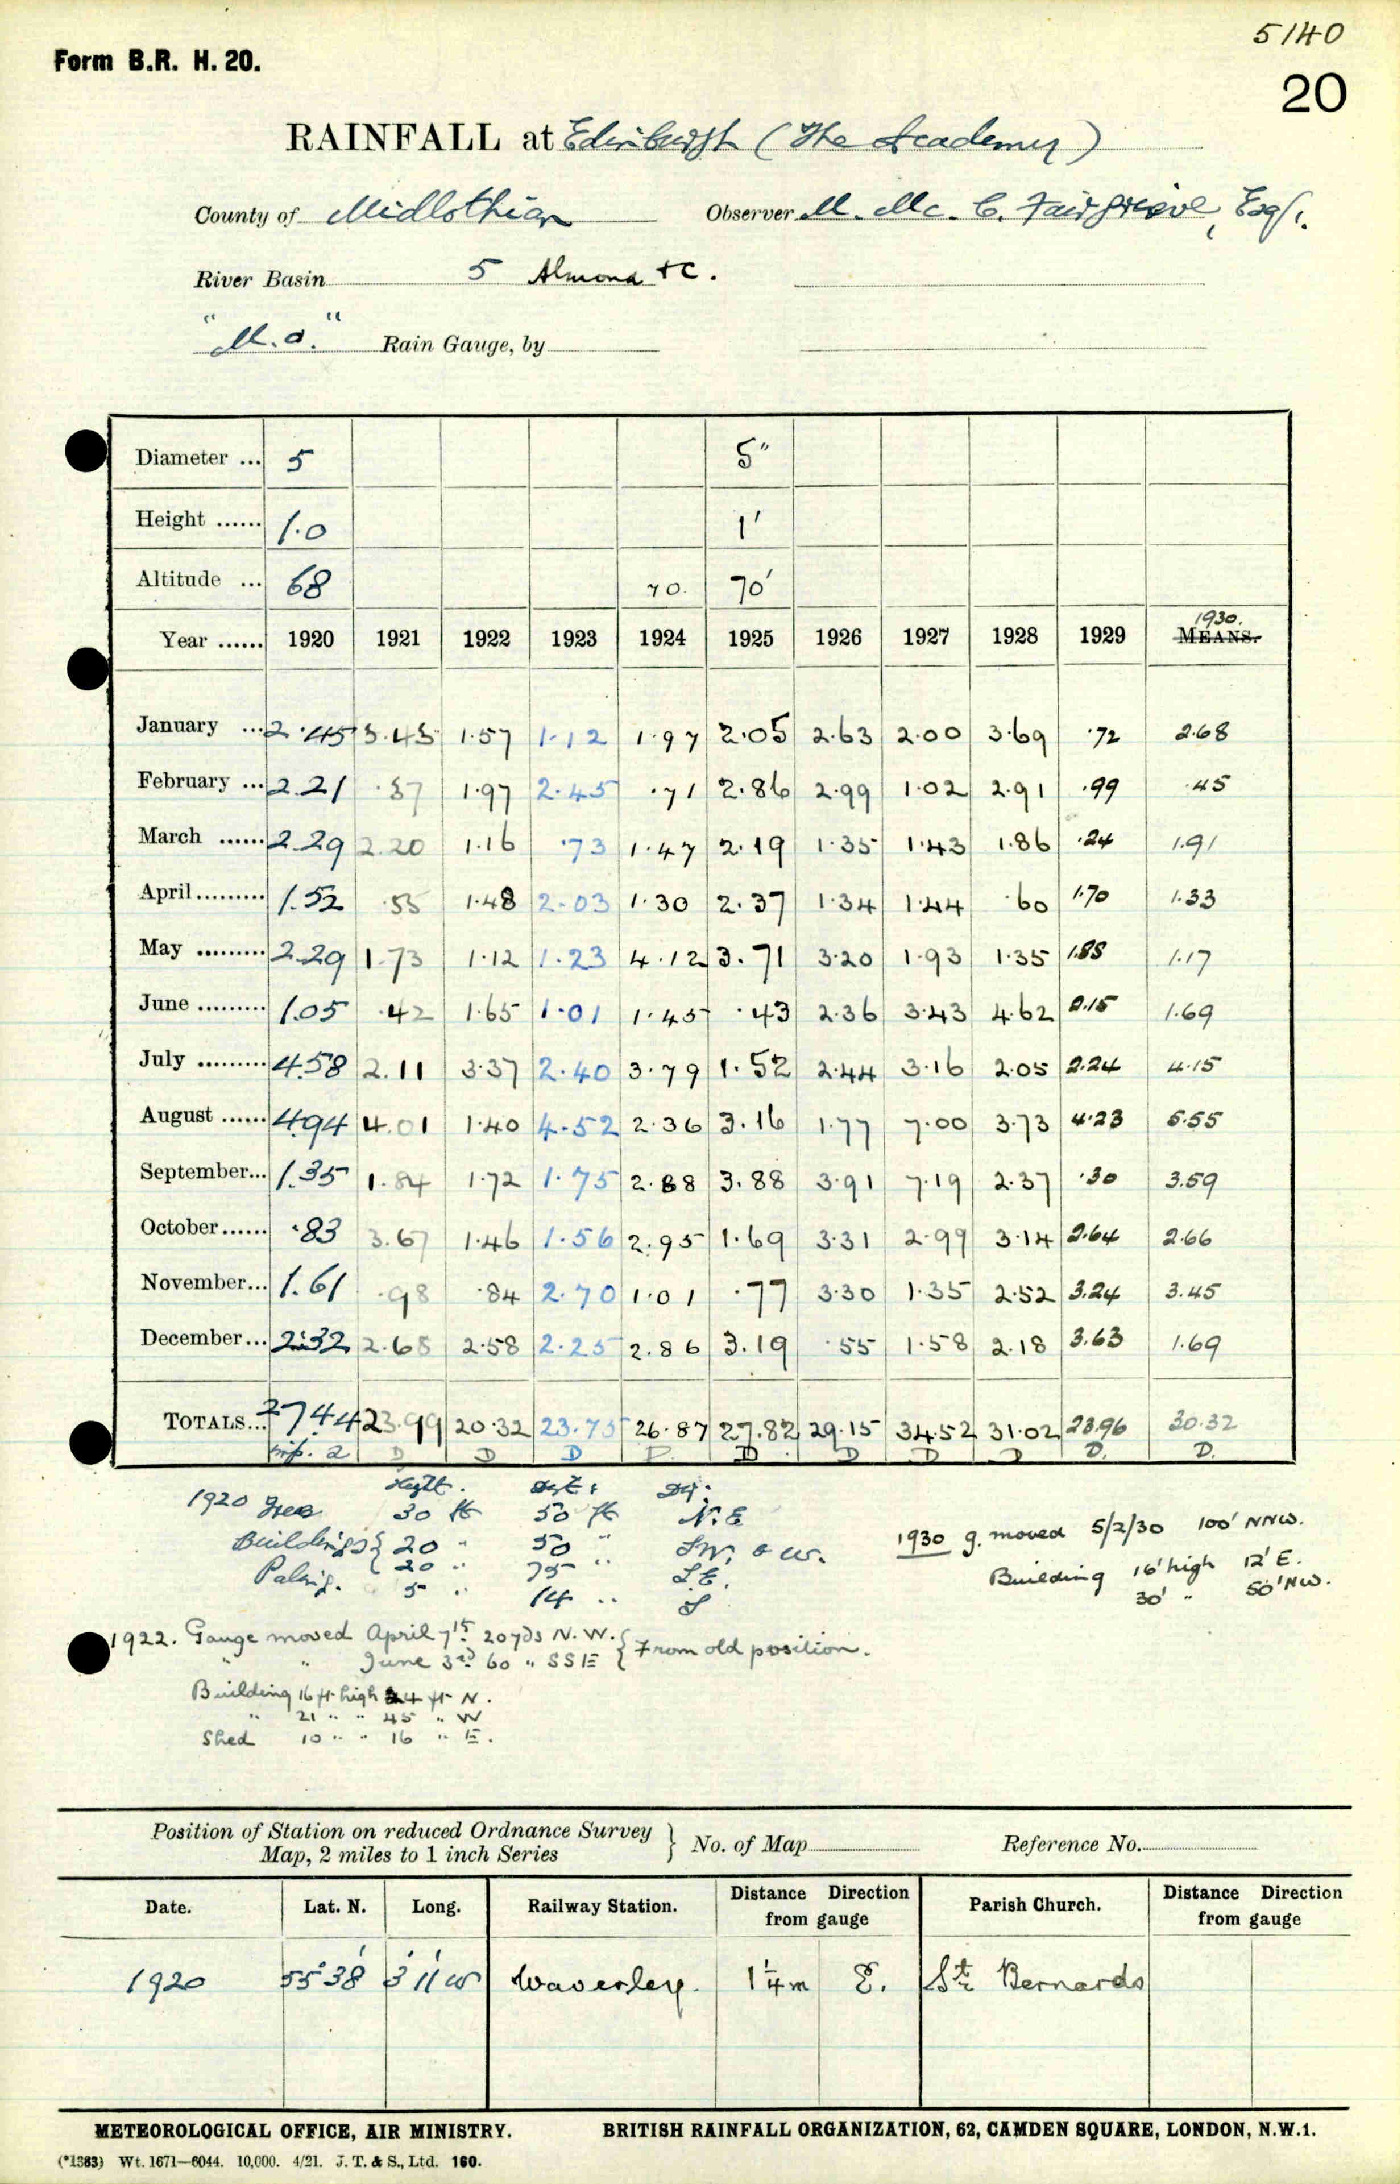 5140
Form B.R. H. 20.
20
RAINFALL at Edinburgh (The Academy)
County of Midlothian Observer M. Mc. C. Fairgrieve, Esq.
River Basin 5 Almond &c.
"M.O." Rain Gauge, by
Diameter ... 5 5"
Height ...... 1.0 1'
Altitude ... 68 70. 70'
Year ...... 1920 1921 1922 1923 1924 1925 1926 1927 1928 1929 1930. MEANS.
January ... 2.45 3.43 1.57 1.12 1.97 2.05 2.63 2.00 3.69 .72 2.68
February ... 2.21 .37 1.97 2.45 .71 2.86 2.99 1.02 2.91 .99 .45
March ...... 2.29 2.20 1.16 .73 1.47 2.19 1.35 1.43 1.86 .24 1.91
April ......... 1.52 .55 1.48 2.03 1.30 2.37 1.34 1.44 .60 1.70 1.33
May ......... 2.29 1.73 1.12 1.23 4.12 3.71 3.20 1.93 1.35 1.88 1.17
June ......... 1.05 .42 1.65 1.01 1.45 .43 2.36 3.43 4.62 2.15 1.69
July ......... 4.58 2.11 3.37 2.40 3.79 1.52 2.44 3.16 2.05 2.24 4.15
August ...... 4.94 4.01 1.40 4.52 2.36 3.16 1.77 7.00 3.73 4.23 5.55
September... 1.35 1.84 1.72 1.75 2.88 3.88 3.91 7.19 2.37 .30 3.59
October...... .83 3.67 1.46 1.56 2.95 1.69 3.31 2.99 3.14 2.64 2.66
November... 1.61 .98 .84 2.70 1.01 .77 3.30 1.35 2.52 3.24 3.45
December... 2.32 2.68 2.58 2.25 2.86 3.19 .55 1.58 2.18 3.63 1.69
TOTALS... 27.44 23.99 20.32 23.75 26.87 27.82 29.15 34.52 31.02 23.96 30.32
D D D D. D D D D D. D.
Hght. Dist: Dir:
1920 Trees 30 ft 50 ft N.E
Buildings { 20 " 50 " S.W. & W.
20 " 75 " S.E.
Paling. 5 " 14 " S
1930 g. moved 5/2/30 100' NNW.
Building 16' high 12' E.
30' " 50' NW.
1922. Gauge moved April 7th 20 yds N.W. { From old position.
" " June 3rd 60 " SSE
Building 16 ft high 24 ft N.
" 21 " " 45 " W
Shed 10 " " 16 " E.
Position of Station on reduced Ordnance Survey Map, 2 miles to 1 inch Series } No. of Map Reference No.
Date. Lat. N. Long. Railway Station. Distance Direction from gauge Parish Church. Distance Direction from gauge
1920 55°38' 3°11' W Waverley. 1 1/4 m E. St Bernards
METEOROLOGICAL OFFICE, AIR MINISTRY. BRITISH RAINFALL ORGANIZATION, 62, CAMDEN SQUARE, LONDON, N.W.1.
(*1383) Wt. 1671—6044. 10,000. 4/21. J. T. & S., Ltd. 160.